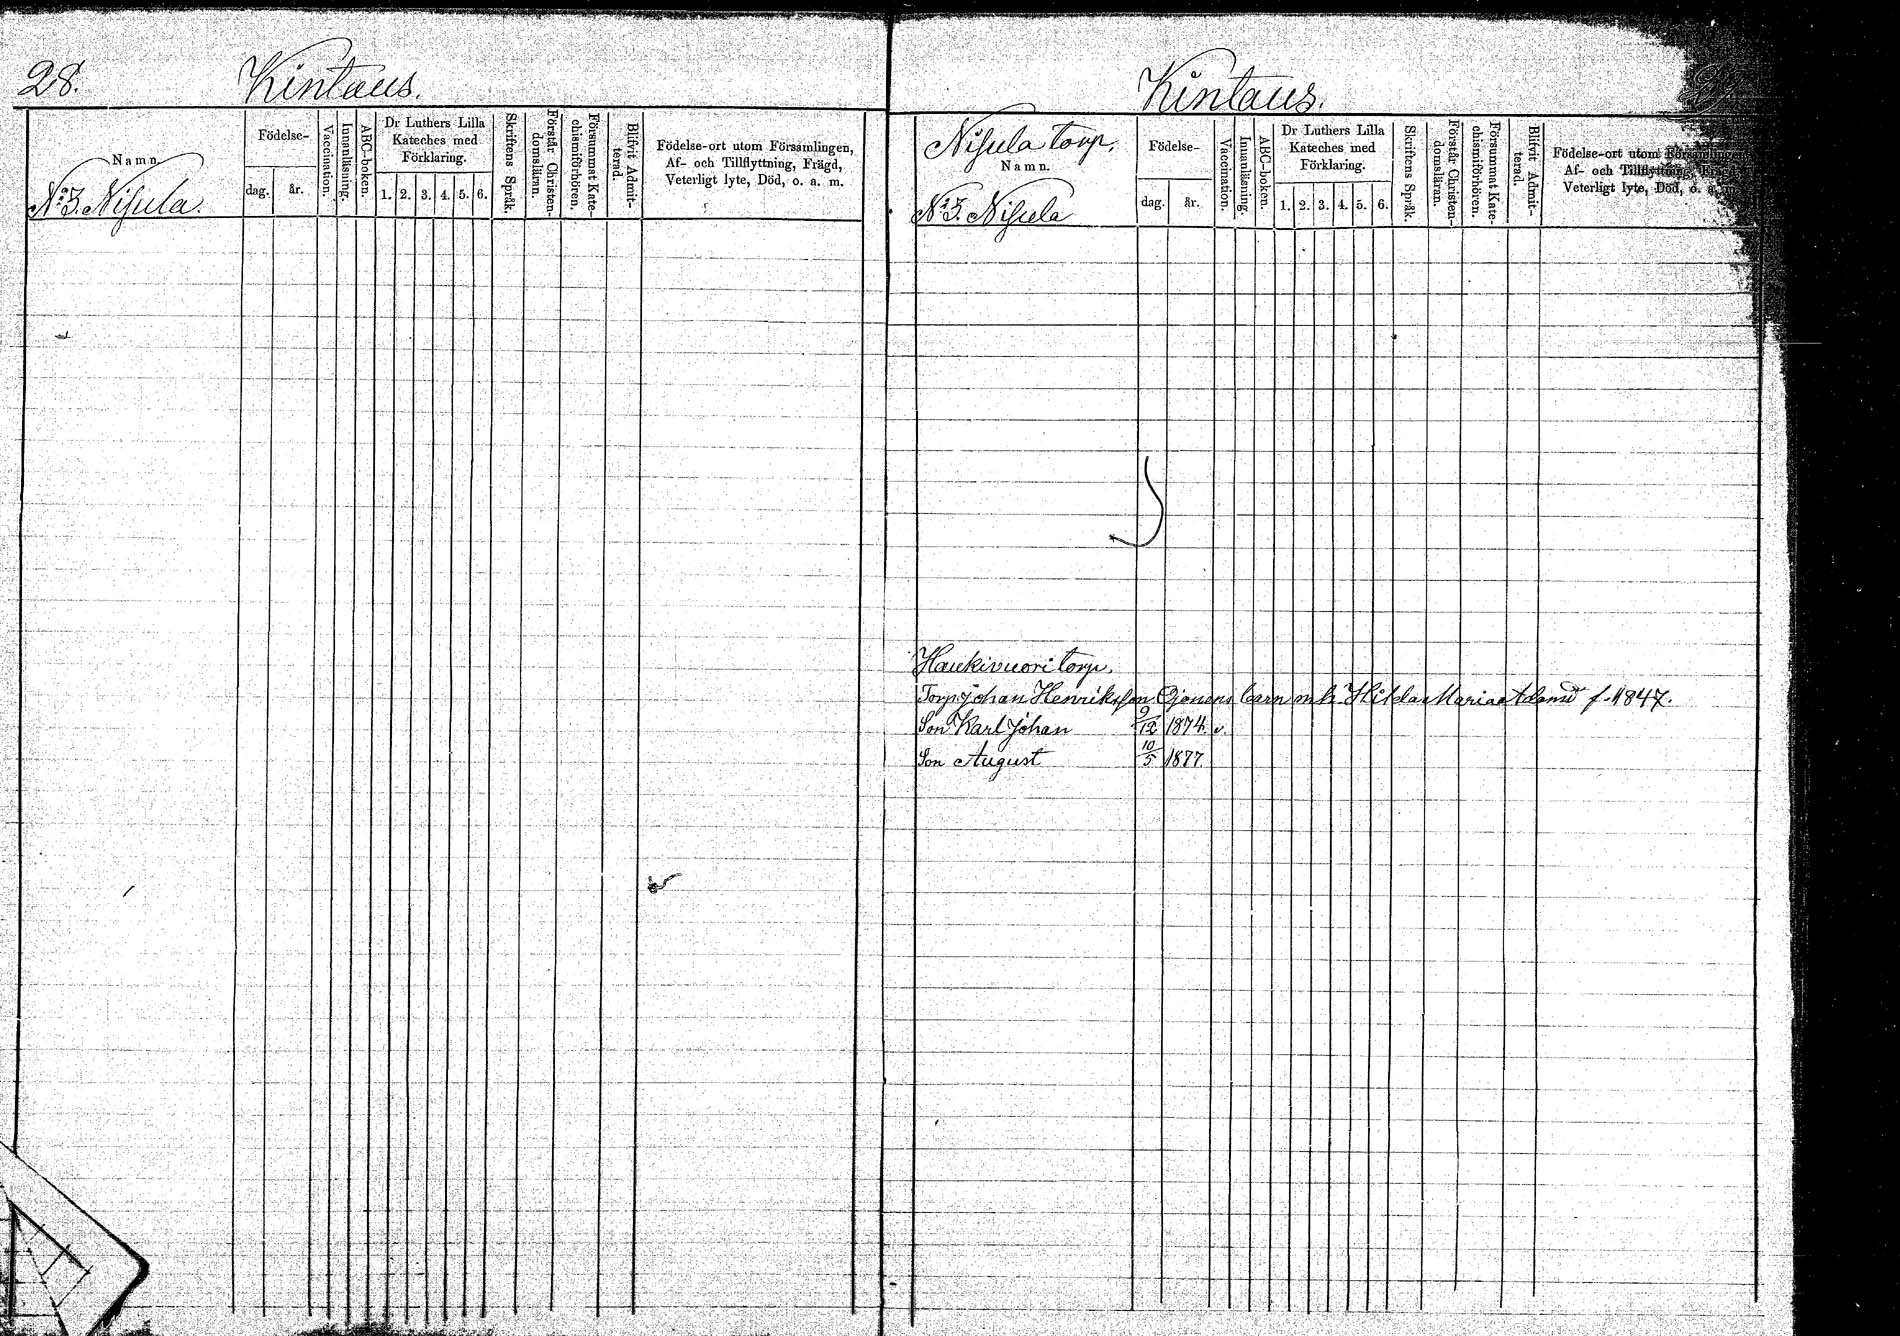 28.
Kintaus.
Namn.
Födelse-
dag.
år.
Vaccination.
Innanläsning.
ABC-boken.
Dr Luthers Lilla
Kateches med
Förklaring.
1. 2. 3. 4. 5. 6.
Skriftens Språk.
Förstår Christen-
domsläran.
Försummat Kate-
chismiförhören.
Blifvit Admit-
terad.
Födelse-ort utom Församlingen,
Af- och Tillflyttning, Frägd,
Veterligt lyte, Död, o. a. m.
No 3. Nisula.
Kintaus.
Nisula torp.
Namn.
Födelse-
dag.
år.
Vaccination.
Innanläsning.
ABC-boken.
Dr Luthers Lilla
Kateches med
Förklaring.
1. 2. 3. 4. 5. 6.
Skriftens Språk.
Förstår Christen-
domsläran.
Försummat Kate-
chismiförhören.
Blifvit Admit-
terad.
Födelse-ort utom Församlingen,
Af- och Tillflyttning, Frägd,
Veterligt lyte, Död, o. a. m.
No 3. Nisula
Haukivuori torp.
Torp Johan Henriksson Ojanens barn m h. Hilda Maria Adamsd f. 1847.
Son Karl Johan 9/12 1874. v.
Son August 10/5 1877